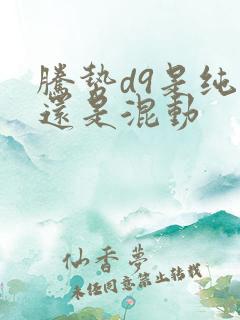 騰勢d9是纯
還是混動
仙香夢
未经同意禁止转载